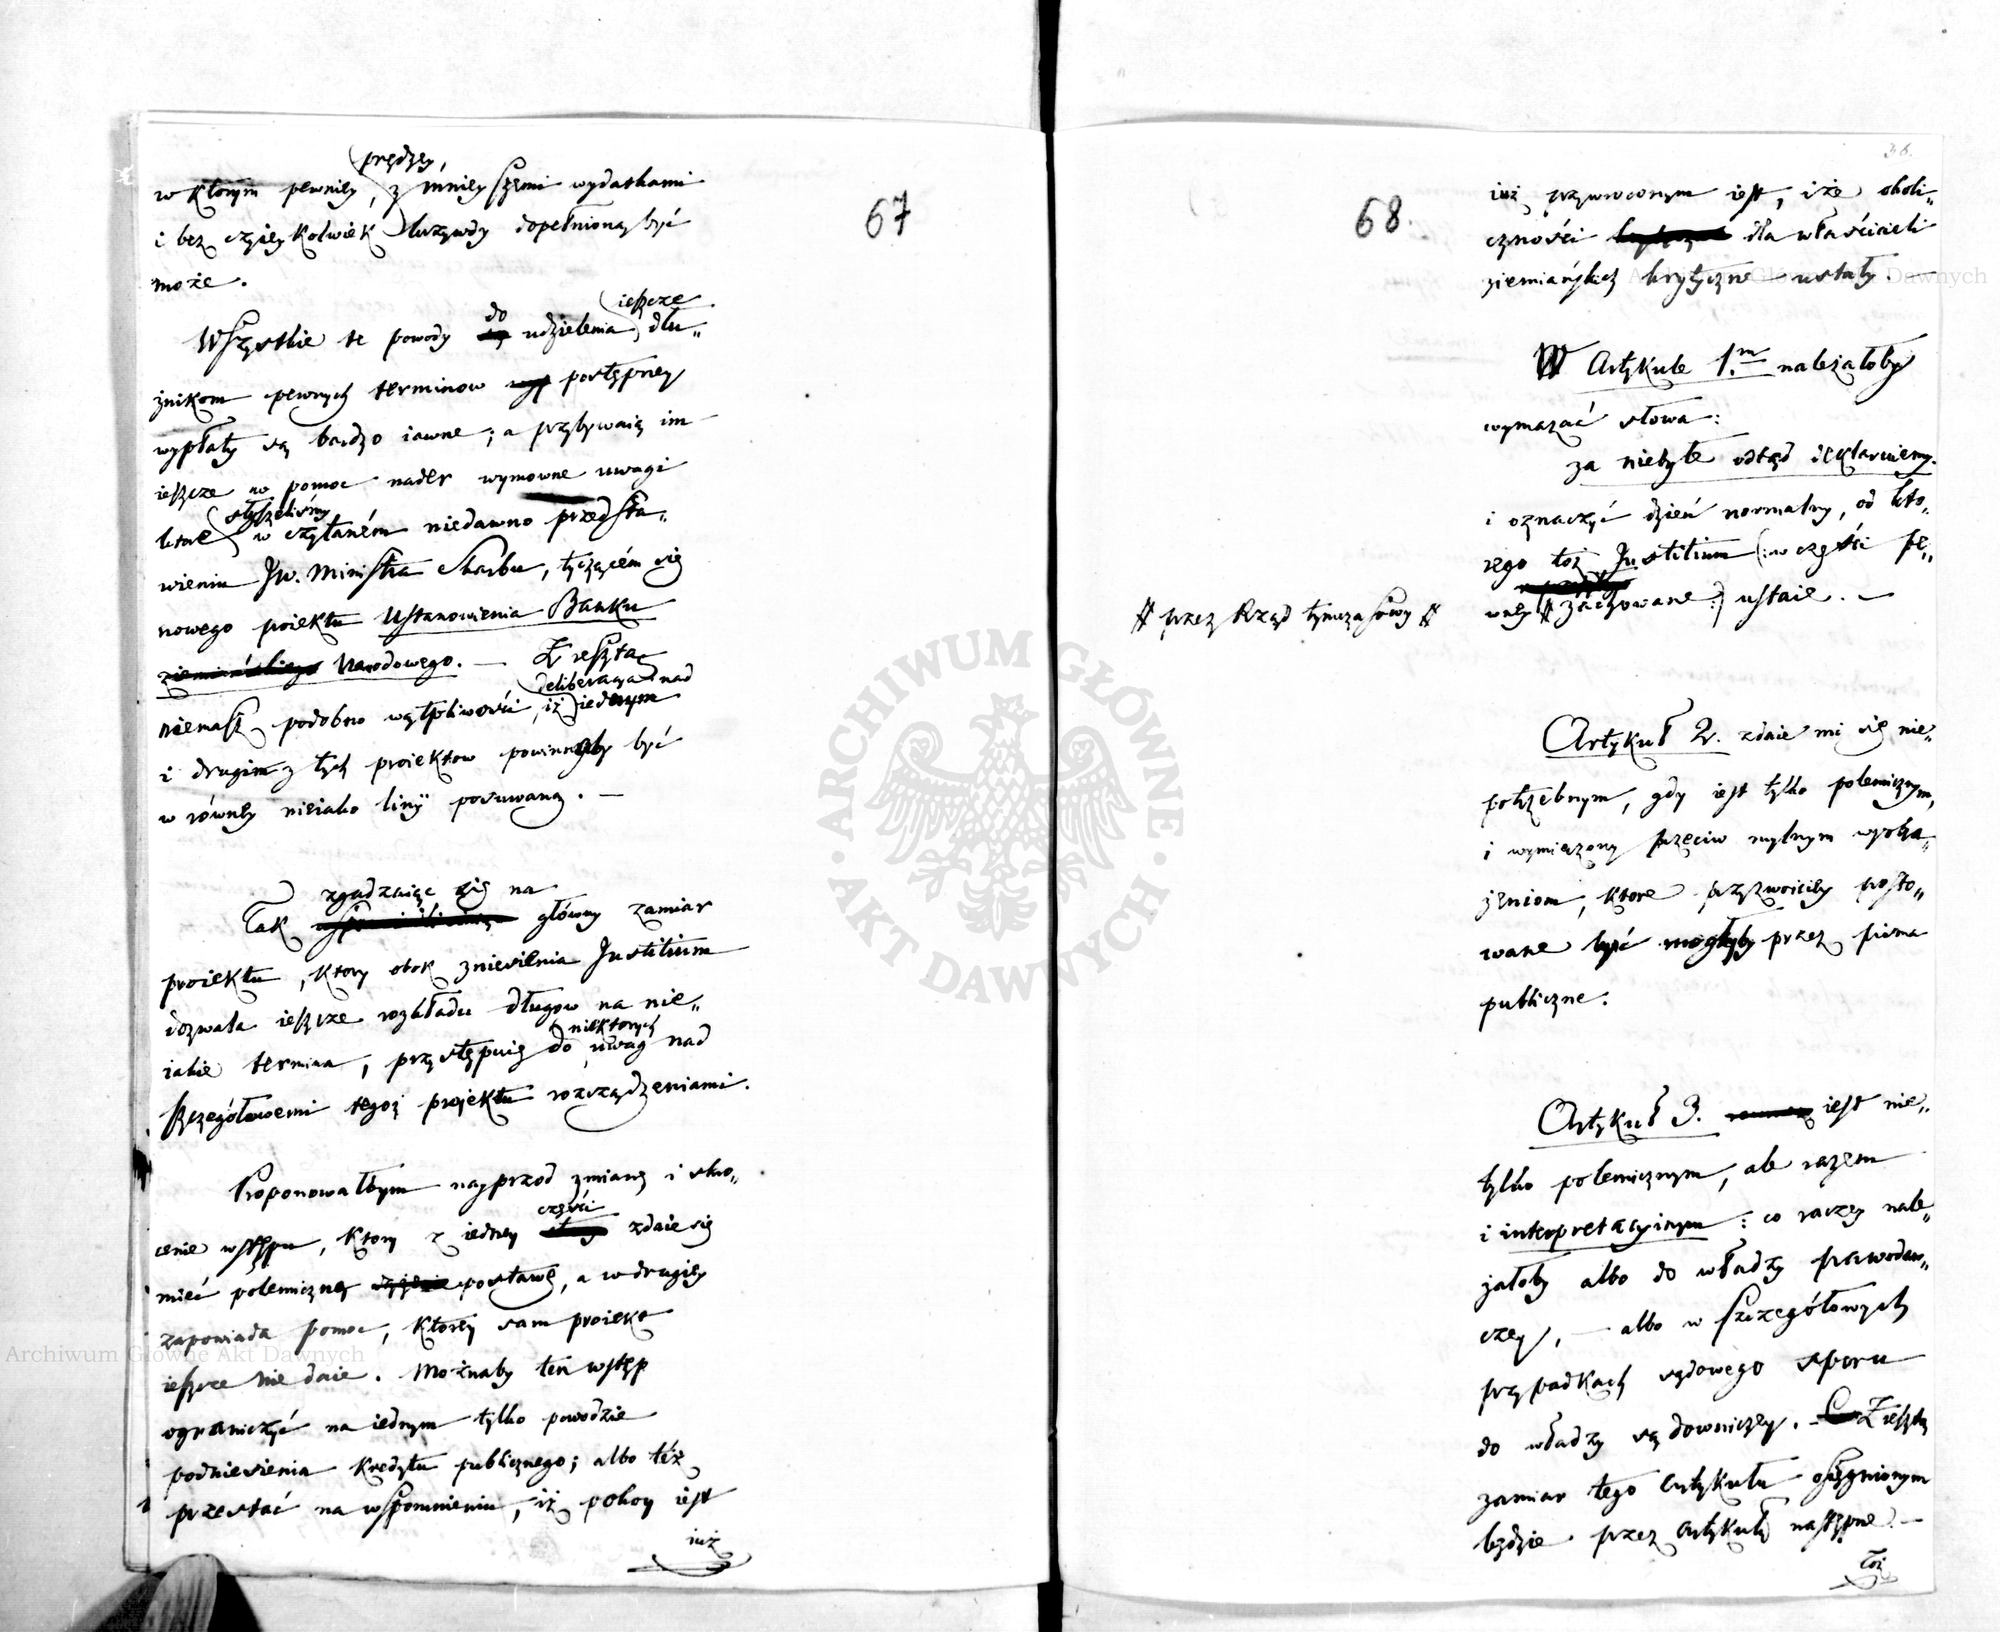 67
prędzey,
w którym pewniey, z mnieyszemi wydatkami
i bez czyieykolwiek krzywdy dopełnioną być
może.
do ieszcze
Wszystkie te powody udzielenia dłu„
żnikom pewnych terminow postępney
wypłaty są bardzo iawne; a przybywaią im
ieszcze w pomoc nader wymowne uwagi
słyszeliśmy
które w czytaném niedawno przedsta„
wieniu Jw. Ministra Skarbu, tyczącém się
nowego proiektu Ustanowienia Banku
ziemiańskiego Narodowego. — Zresztą
deliberacya nad
niemasz podobno wątpliwości, iż iednym
i drugim z tych proiektow powinnaby być
w równey nieiako linÿ posuwaną. —
zgadzaiąc się na
Tak główny zamiar
proiektu, ktory obok zniesienia Justitium
dozwala ieszcze rozkładu długow na nie„
niektorych
iakie termina, przystępuię do uwag nad
szczegółowemi tegoż projektu rozrządzeniami.
Proponowałbym nayprzod zmianę i skro„
części
cenie wstępu, ktory z iedney strony zdaie się
mieć polemiczną postawę, a w drugiey
zapowiada pomoc, którey sam proiekt
ieszcze nie daie. Możnaby ten wstęp
ograniczyć na iednym tylko powodzie
podniesienia kredytu publicznego; albo téż
przestać na wspomnieniu, iż pokoy iest
iuż
68.
36.
iuż przywroconym iest, i że okoli„
czności dla właścicieli
ziemiańskich krytyczne ustały. —
W Artykule 1.m należałoby
wymazać słowa:
za niebyłe odtąd deklaruiemy.
i oznaczyć dzień normalny, od kto„
rego toż Justitium (: w części pe„
wney # zachowane :) ustaie. —
# przez Rząd tymczasowy #
Artykuł 2. zdaie mi się nie„
potrzebnym, gdy iest tylko polemicznym,
i wymierzony przeciw mylnym wyobra„
żeniom, ktore przyzwoiciey prosto„
wane być mogłyby przez pisma
publiczne.
Artykuł 3. iest nie„
tylko polemicznym, ale razem
i interpretacyinym: co raczey nale„
żałoby albo do władzy prawodaw„
czey, — albo w szczegółowych
przypadkach sądowego sporu
do władzy sądowniczey. — Zresztą
zamiar tego Artykułu osięgnionym
będzie przez Artykuły następne. —
toż
Archiwum Główne Akt Dawnych
Archiwum Główne Akt Dawnych
ARCHIWUM GŁÓWNE • AKT DAWNYCH •